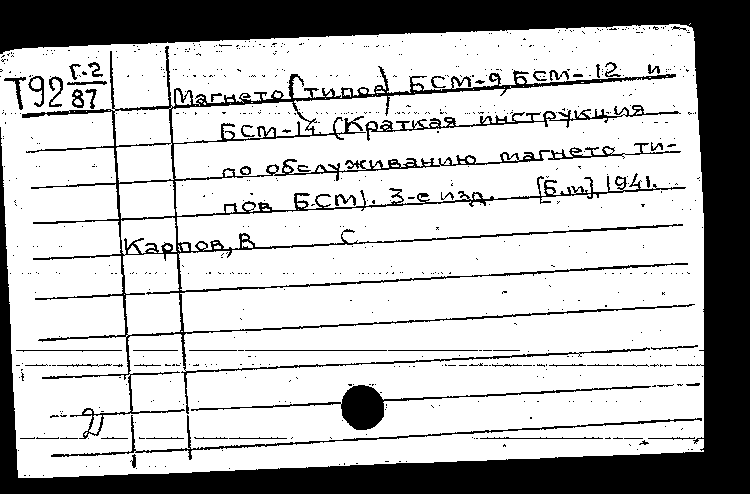 Т92 Г-2/87
Магнето (типов) БСМ-9, БСМ-12 и
БСМ-14 (Краткая инструкция
по обслуживанию магнето ти-
пов БСМ). 3-е изд. [Б.м], 1941.
Карпов, В С